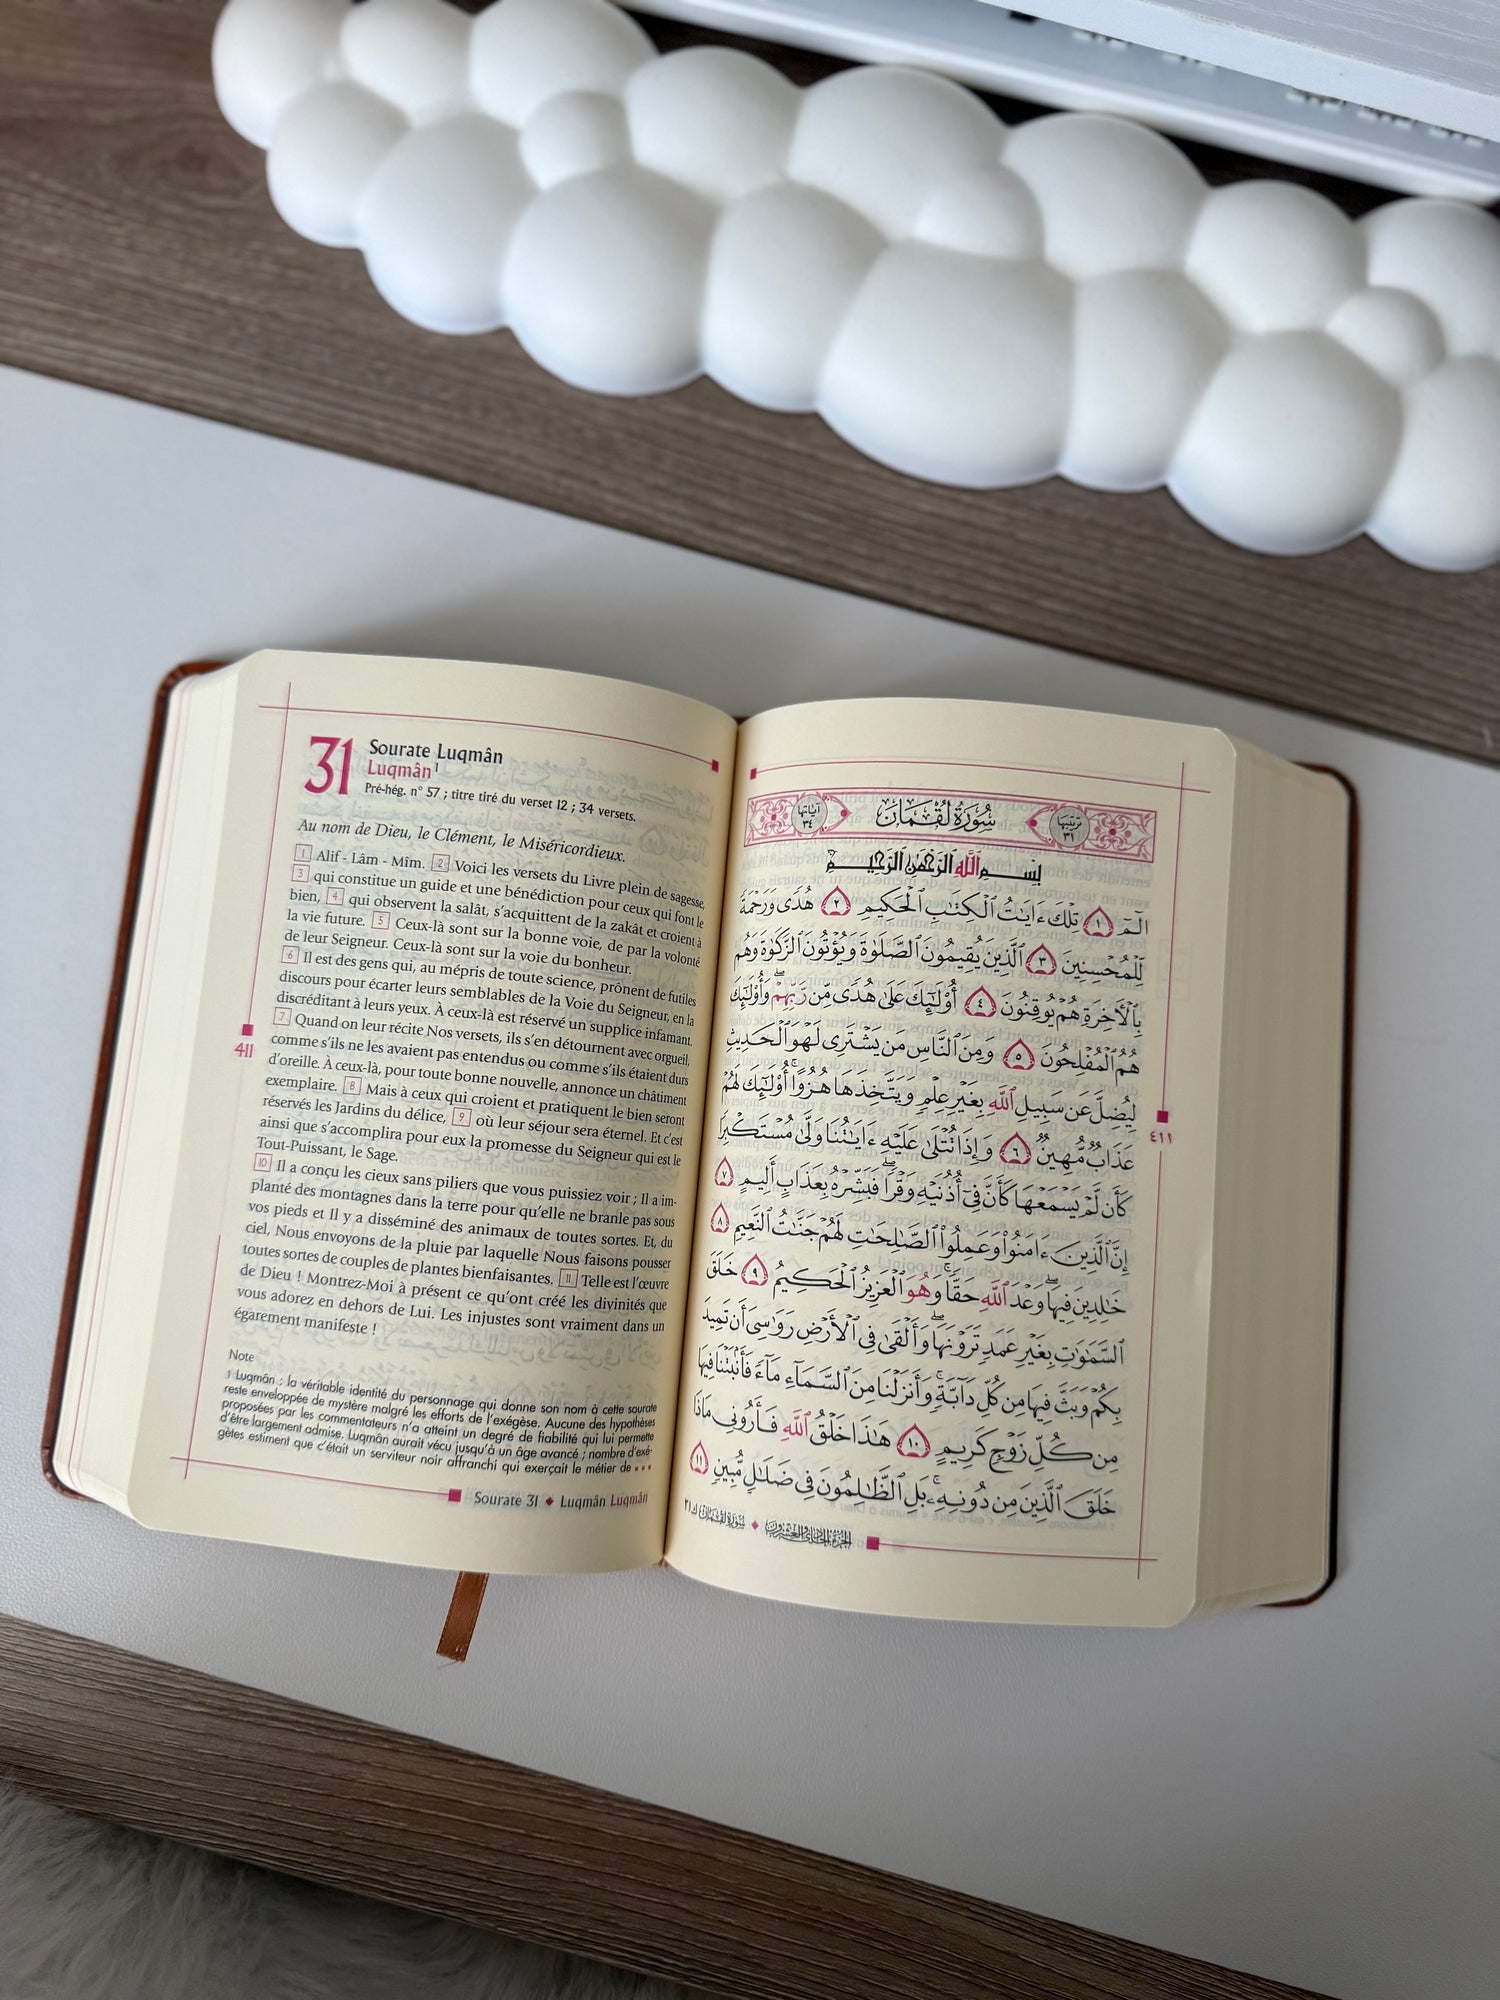 31 Sourate Luqmân
Luqmân¹
Pré-hég. n° 57 ; titre tiré du verset 12 ; 34 versets.
Au nom de Dieu, le Clément, le Miséricordieux.
1 Alif - Lâm - Mîm. 2 Voici les versets du Livre plein de sagesse,
3 qui constitue un guide et une bénédiction pour ceux qui font le
bien, 4 qui observent la salât, s'acquittent de la zakât et croient à
la vie future. 5 Ceux-là sont sur la bonne voie, de par la volonté
de leur Seigneur. Ceux-là sont sur la voie du bonheur.
6 Il est des gens qui, au mépris de toute science, prônent de futiles
discours pour écarter leurs semblables de la Voie du Seigneur, en la
discréditant à leurs yeux. À ceux-là est réservé un supplice infamant.
7 Quand on leur récite Nos versets, ils s'en détournent avec orgueil,
comme s'ils ne les avaient pas entendus ou comme s'ils étaient durs
d'oreille. À ceux-là, pour toute bonne nouvelle, annonce un châtiment
exemplaire. 8 Mais à ceux qui croient et pratiquent le bien seront
réservés les Jardins du délice, 9 où leur séjour sera éternel. Et c'est
ainsi que s'accomplira pour eux la promesse du Seigneur qui est le
Tout-Puissant, le Sage.
10 Il a conçu les cieux sans piliers que vous puissiez voir ; Il a im-
planté des montagnes dans la terre pour qu'elle ne branle pas sous
vos pieds et Il y a disséminé des animaux de toutes sortes. Et, du
ciel, Nous envoyons de la pluie par laquelle Nous faisons pousser
toutes sortes de couples de plantes bienfaisantes. 11 Telle est l'œuvre
de Dieu ! Montrez-Moi à présent ce qu'ont créé les divinités que
vous adorez en dehors de Lui. Les injustes sont vraiment dans un
égarement manifeste !
Note
1 Luqmân : la véritable identité du personnage qui donne son nom à cette sourate
reste enveloppée de mystère malgré les efforts de l'exégèse. Aucune des hypothèses
proposées par les commentateurs n'a atteint un degré de fiabilité qui lui permette
d'être largement admise. Luqmân aurait vécu jusqu'à un âge avancé ; nombre d'exé-
gètes estiment que c'était un serviteur noir affranchi qui exerçait le métier de
Sourate 31 ◆ Luqmân Luqmân
411
ترتيبها ٣١ سُورَةُ لُقْمَان آياتها ٣٤
بِسْمِ ٱللَّهِ ٱلرَّحْمَٰنِ ٱلرَّحِيمِ
الٓمٓ ١ تِلْكَ ءَايَٰتُ ٱلْكِتَٰبِ ٱلْحَكِيمِ ٢ هُدًى وَرَحْمَةً
لِّلْمُحْسِنِينَ ٣ ٱلَّذِينَ يُقِيمُونَ ٱلصَّلَوٰةَ وَيُؤْتُونَ ٱلزَّكَوٰةَ وَهُم
بِٱلْءَاخِرَةِ هُمْ يُوقِنُونَ ٤ أُوْلَٰٓئِكَ عَلَىٰ هُدًى مِّن رَّبِّهِمْ ۖ وَأُوْلَٰٓئِكَ
هُمُ ٱلْمُفْلِحُونَ ٥ وَمِنَ ٱلنَّاسِ مَن يَشْتَرِى لَهْوَ ٱلْحَدِيثِ
لِيُضِلَّ عَن سَبِيلِ ٱللَّهِ بِغَيْرِ عِلْمٍ وَيَتَّخِذَهَا هُزُوًا ۚ أُوْلَٰٓئِكَ لَهُمْ
عَذَابٌ مُّهِينٌ ٦ وَإِذَا تُتْلَىٰ عَلَيْهِ ءَايَٰتُنَا وَلَّىٰ مُسْتَكْبِرًا
كَأَن لَّمْ يَسْمَعْهَا كَأَنَّ فِىٓ أُذُنَيْهِ وَقْرًا ۖ فَبَشِّرْهُ بِعَذَابٍ أَلِيمٍ ٧
إِنَّ ٱلَّذِينَ ءَامَنُوا۟ وَعَمِلُوا۟ ٱلصَّٰلِحَٰتِ لَهُمْ جَنَّٰتُ ٱلنَّعِيمِ ٨
خَٰلِدِينَ فِيهَا ۖ وَعْدَ ٱللَّهِ حَقًّا ۚ وَهُوَ ٱلْعَزِيزُ ٱلْحَكِيمُ ٩ خَلَقَ
ٱلسَّمَٰوَٰتِ بِغَيْرِ عَمَدٍ تَرَوْنَهَا ۖ وَأَلْقَىٰ فِى ٱلْأَرْضِ رَوَٰسِىَ أَن تَمِيدَ
بِكُمْ وَبَثَّ فِيهَا مِن كُلِّ دَآبَّةٍ ۚ وَأَنزَلْنَا مِنَ ٱلسَّمَآءِ مَآءً فَأَنۢبَتْنَا فِيهَا
مِن كُلِّ زَوْجٍ كَرِيمٍ ١٠ هَٰذَا خَلْقُ ٱللَّهِ فَأَرُونِى مَاذَا
خَلَقَ ٱلَّذِينَ مِن دُونِهِۦ ۚ بَلِ ٱلظَّٰلِمُونَ فِى ضَلَٰلٍ مُّبِينٍ ١١
الجزء الحادي والعشرون ◆ سورة لقمان
٤١١